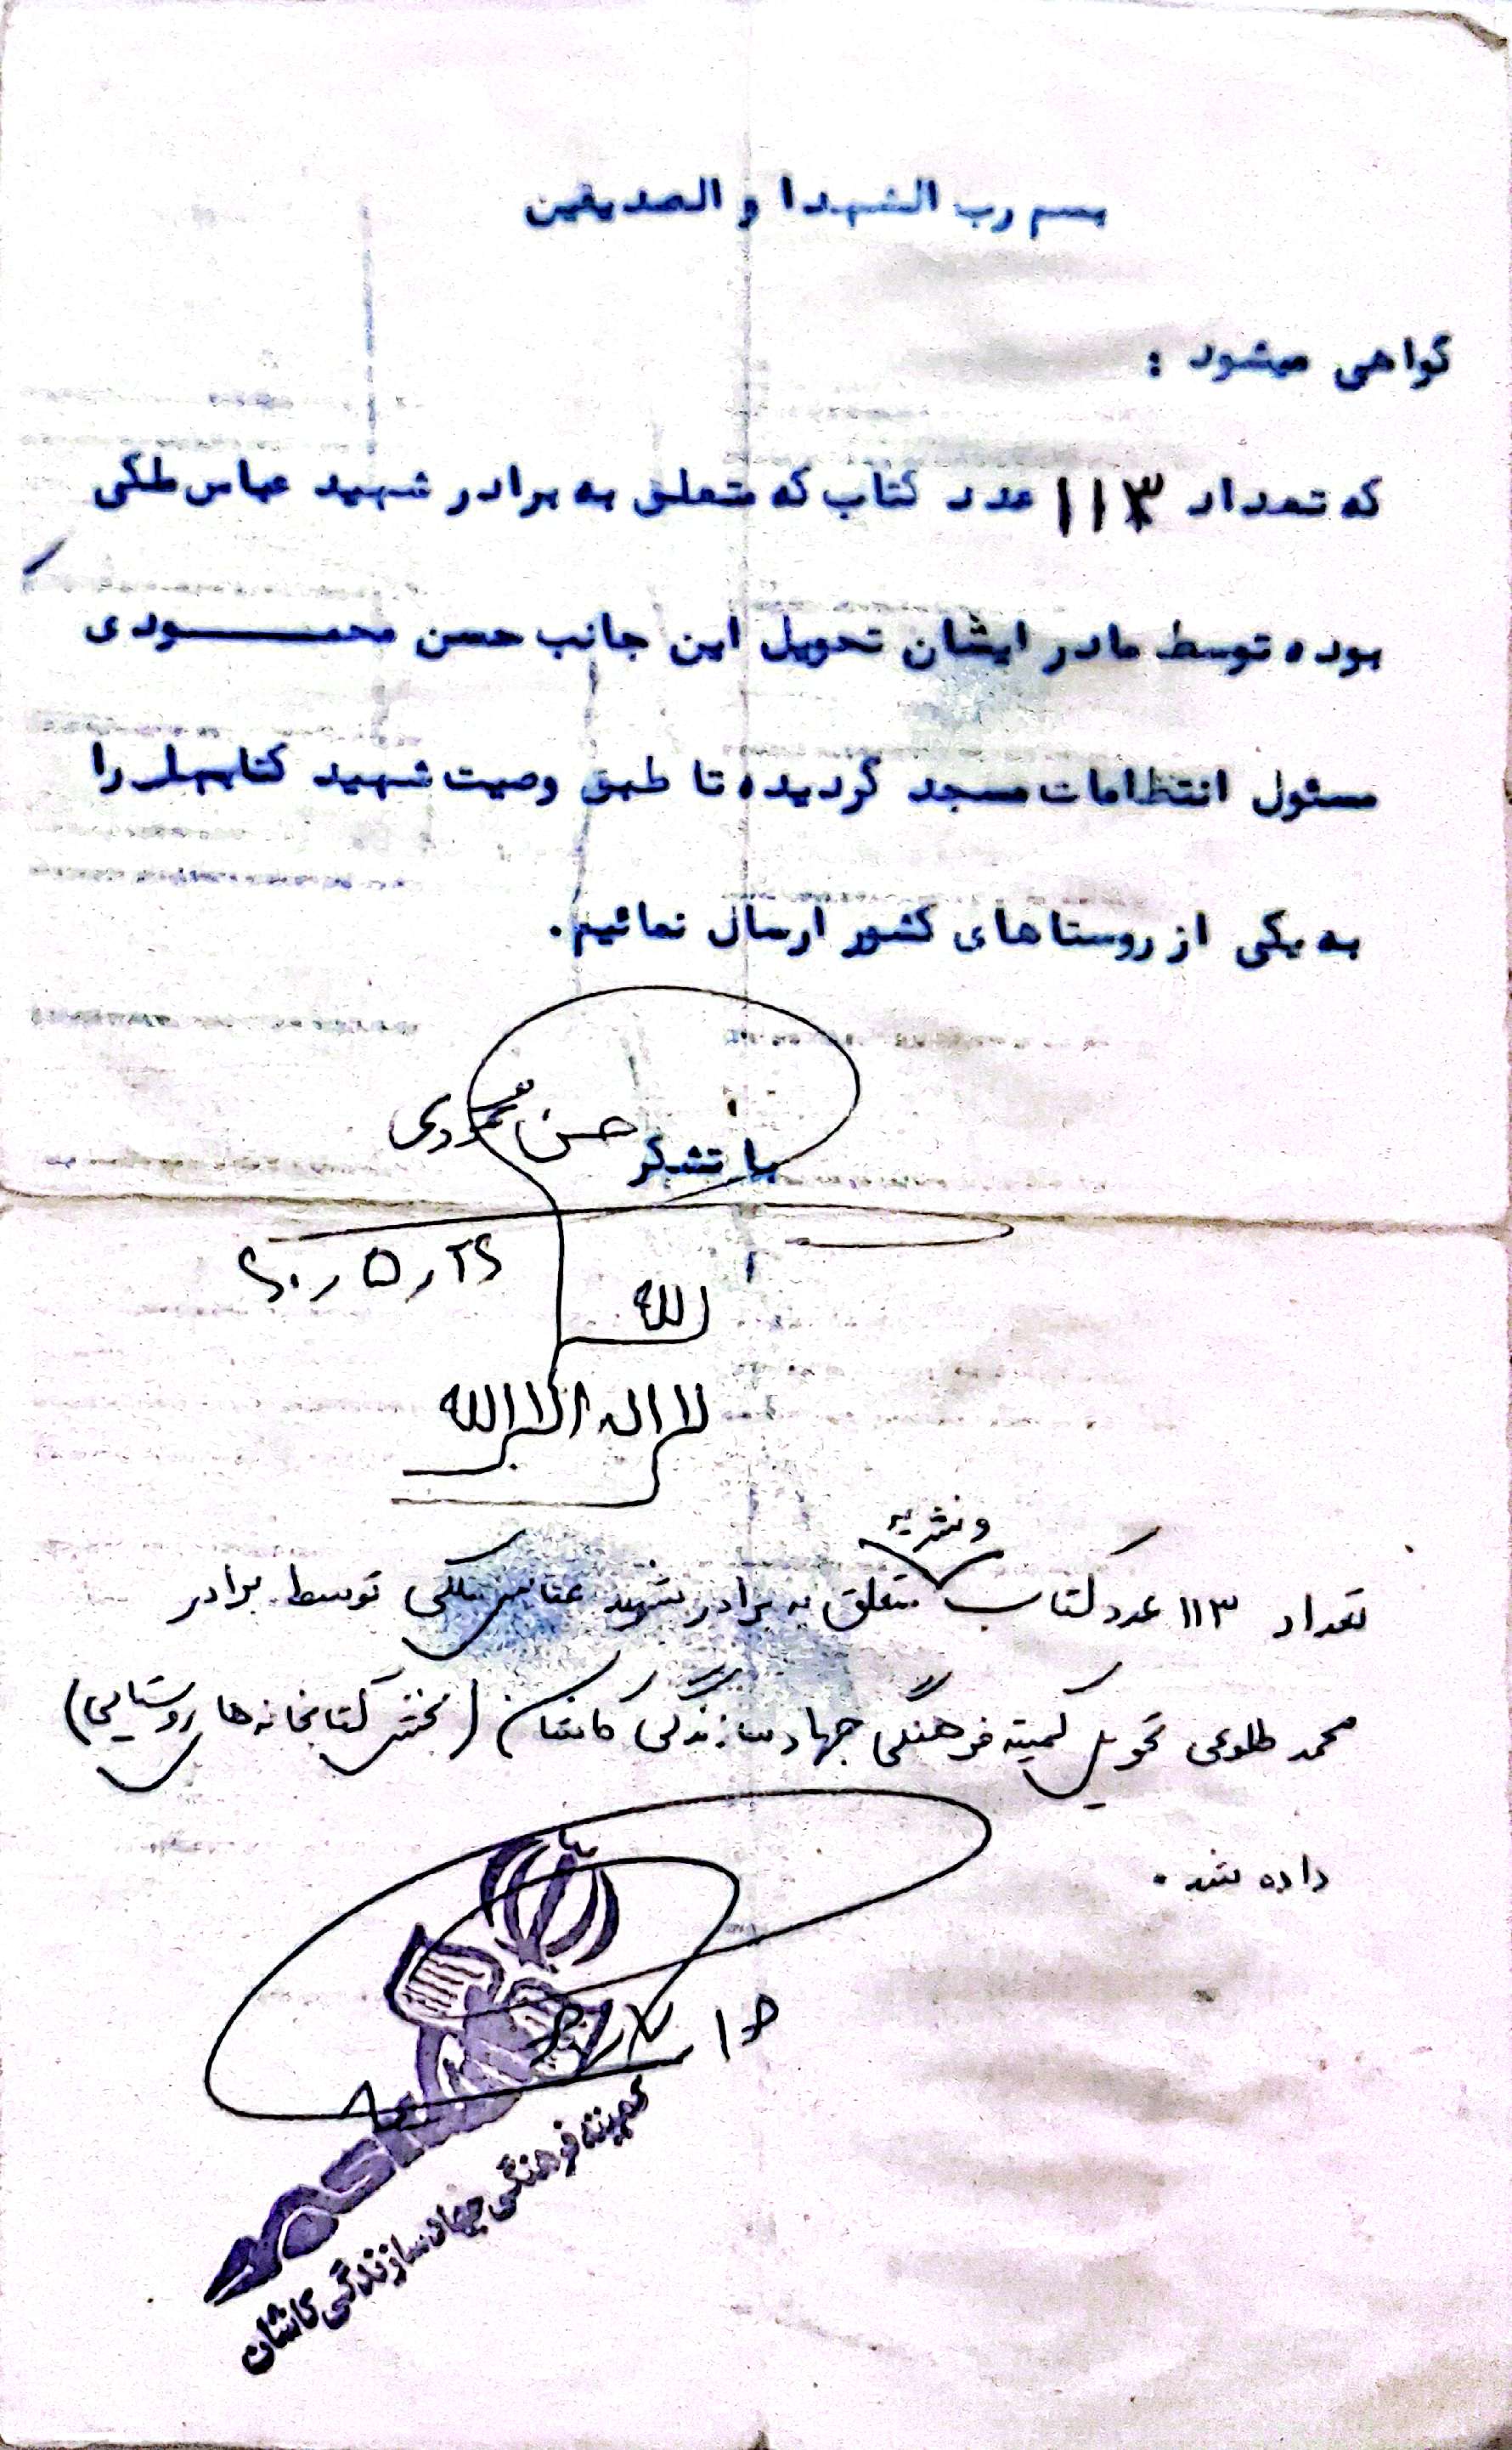 بسم رب الشهدا و الصدیقین
گواهی میشود :
که تعداد ۱۱۳ عدد کتاب که متعلق به برادر شهید عباس ملکی
بوده توسط مادر ایشان تحویل این جانب حسن محمــــــودی
مسئول انتظامات مسجد گردیده تا طبق وصیت شهید کتابها را
به یکی از روستاهای کشور ارسال نمائیم.
حسن محمودی
با تشکر
۶۰٫۵٫۲۶
لله
لا اله الا الله
و نشریه
تعداد ۱۱۳ عدد کتاب متعلق به برادر شهید عباس ملکی توسط برادر
محمد طلوعی تحویل کمیته فرهنگی جهاد سازندگی کاشان (بخش کتابخانه ها روستایی)
داده شد.
کمیته فرهنگی جهاد سازندگی کاشان